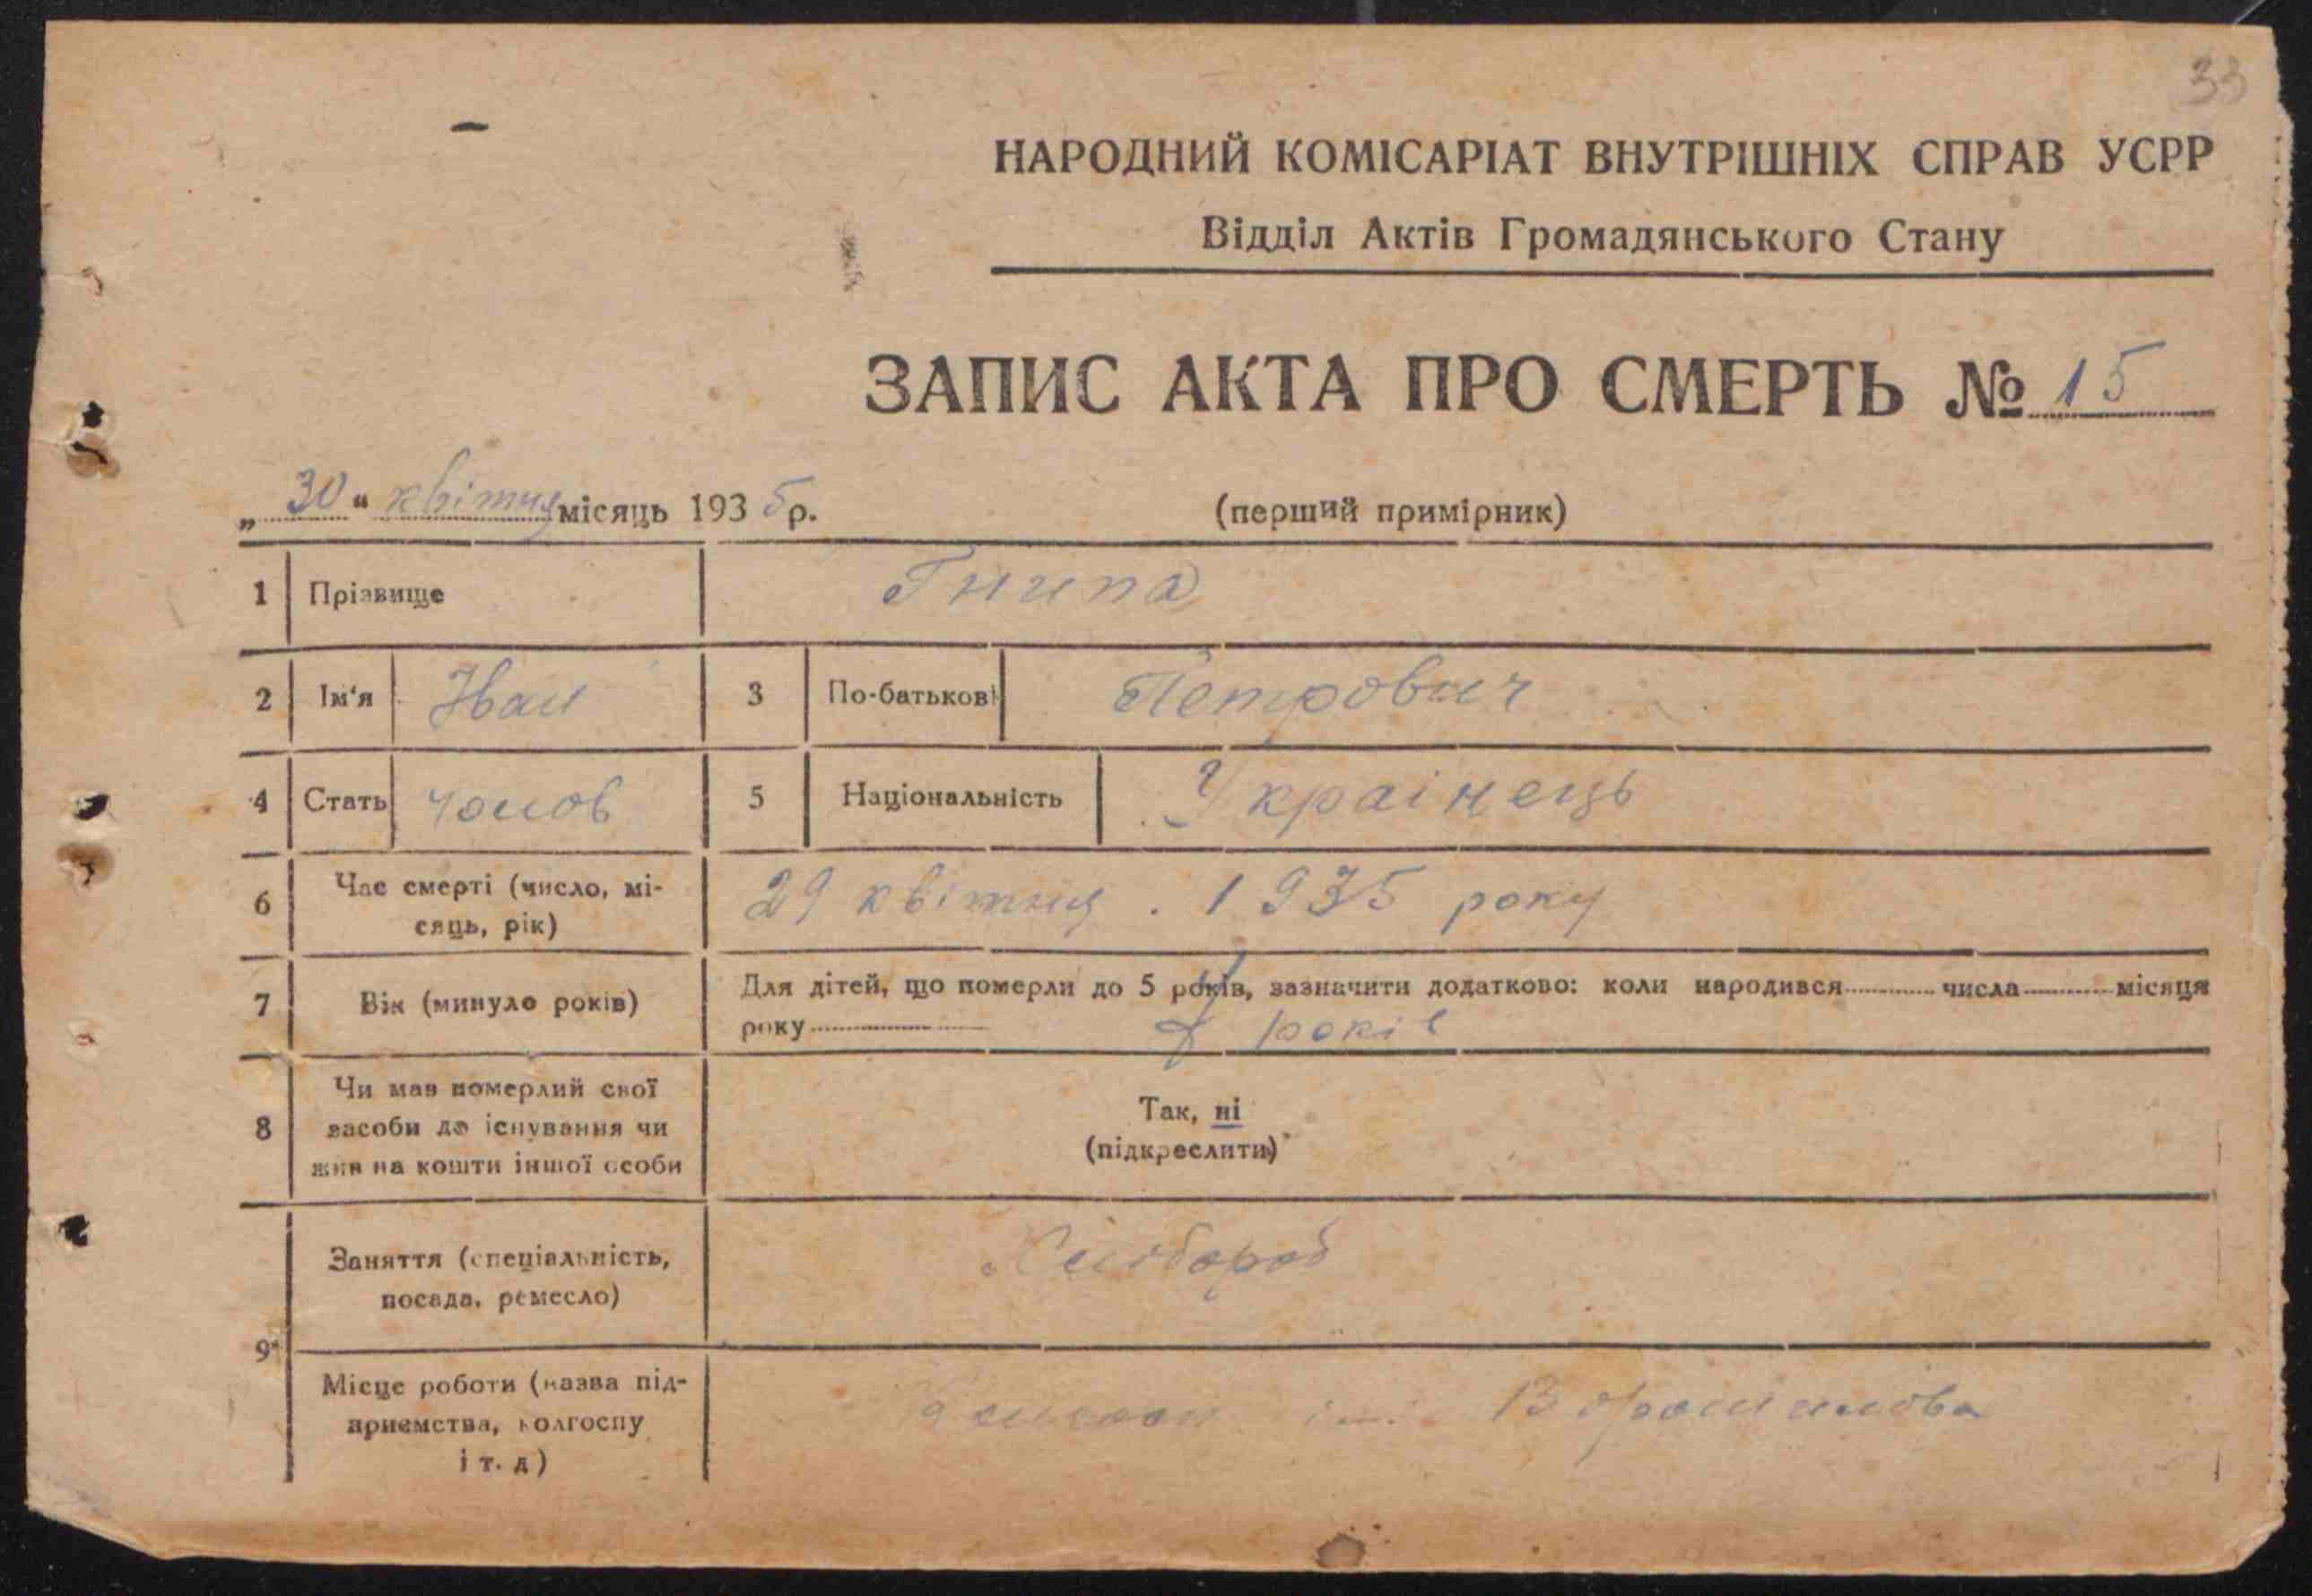 33
НАРОДНИЙ КОМІСАРІАТ ВНУТРІШНІХ СПРАВ УСРР
Відділ Актів Громадянського Стану
ЗАПИС АКТА ПРО СМЕРТЬ № 15
„30“ квітня місяць 1935 р.
(перший примірник)
1 Прізвище Гнипа
2 Ім'я Іван 3 По-батькові Петрович
4 Стать чолов 5 Національність Українець
6 Час смерті (число, мі-
сяць, рік) 29 квітня . 1935 року
7 Вік (минуло років) Для дітей, що померли до 5 років, зазначити додатково: коли народився числа місяця
року років
8 Чи мав померлий свої
засоби до існування чи
жив на кошти іншої особи
Так, ні
(підкреслити)
9 Заняття (спеціальність,
посада, ремесло) Хлібороб
Місце роботи (назва під-
приємства, колгоспу
і т. д)
ім. Ворошилова